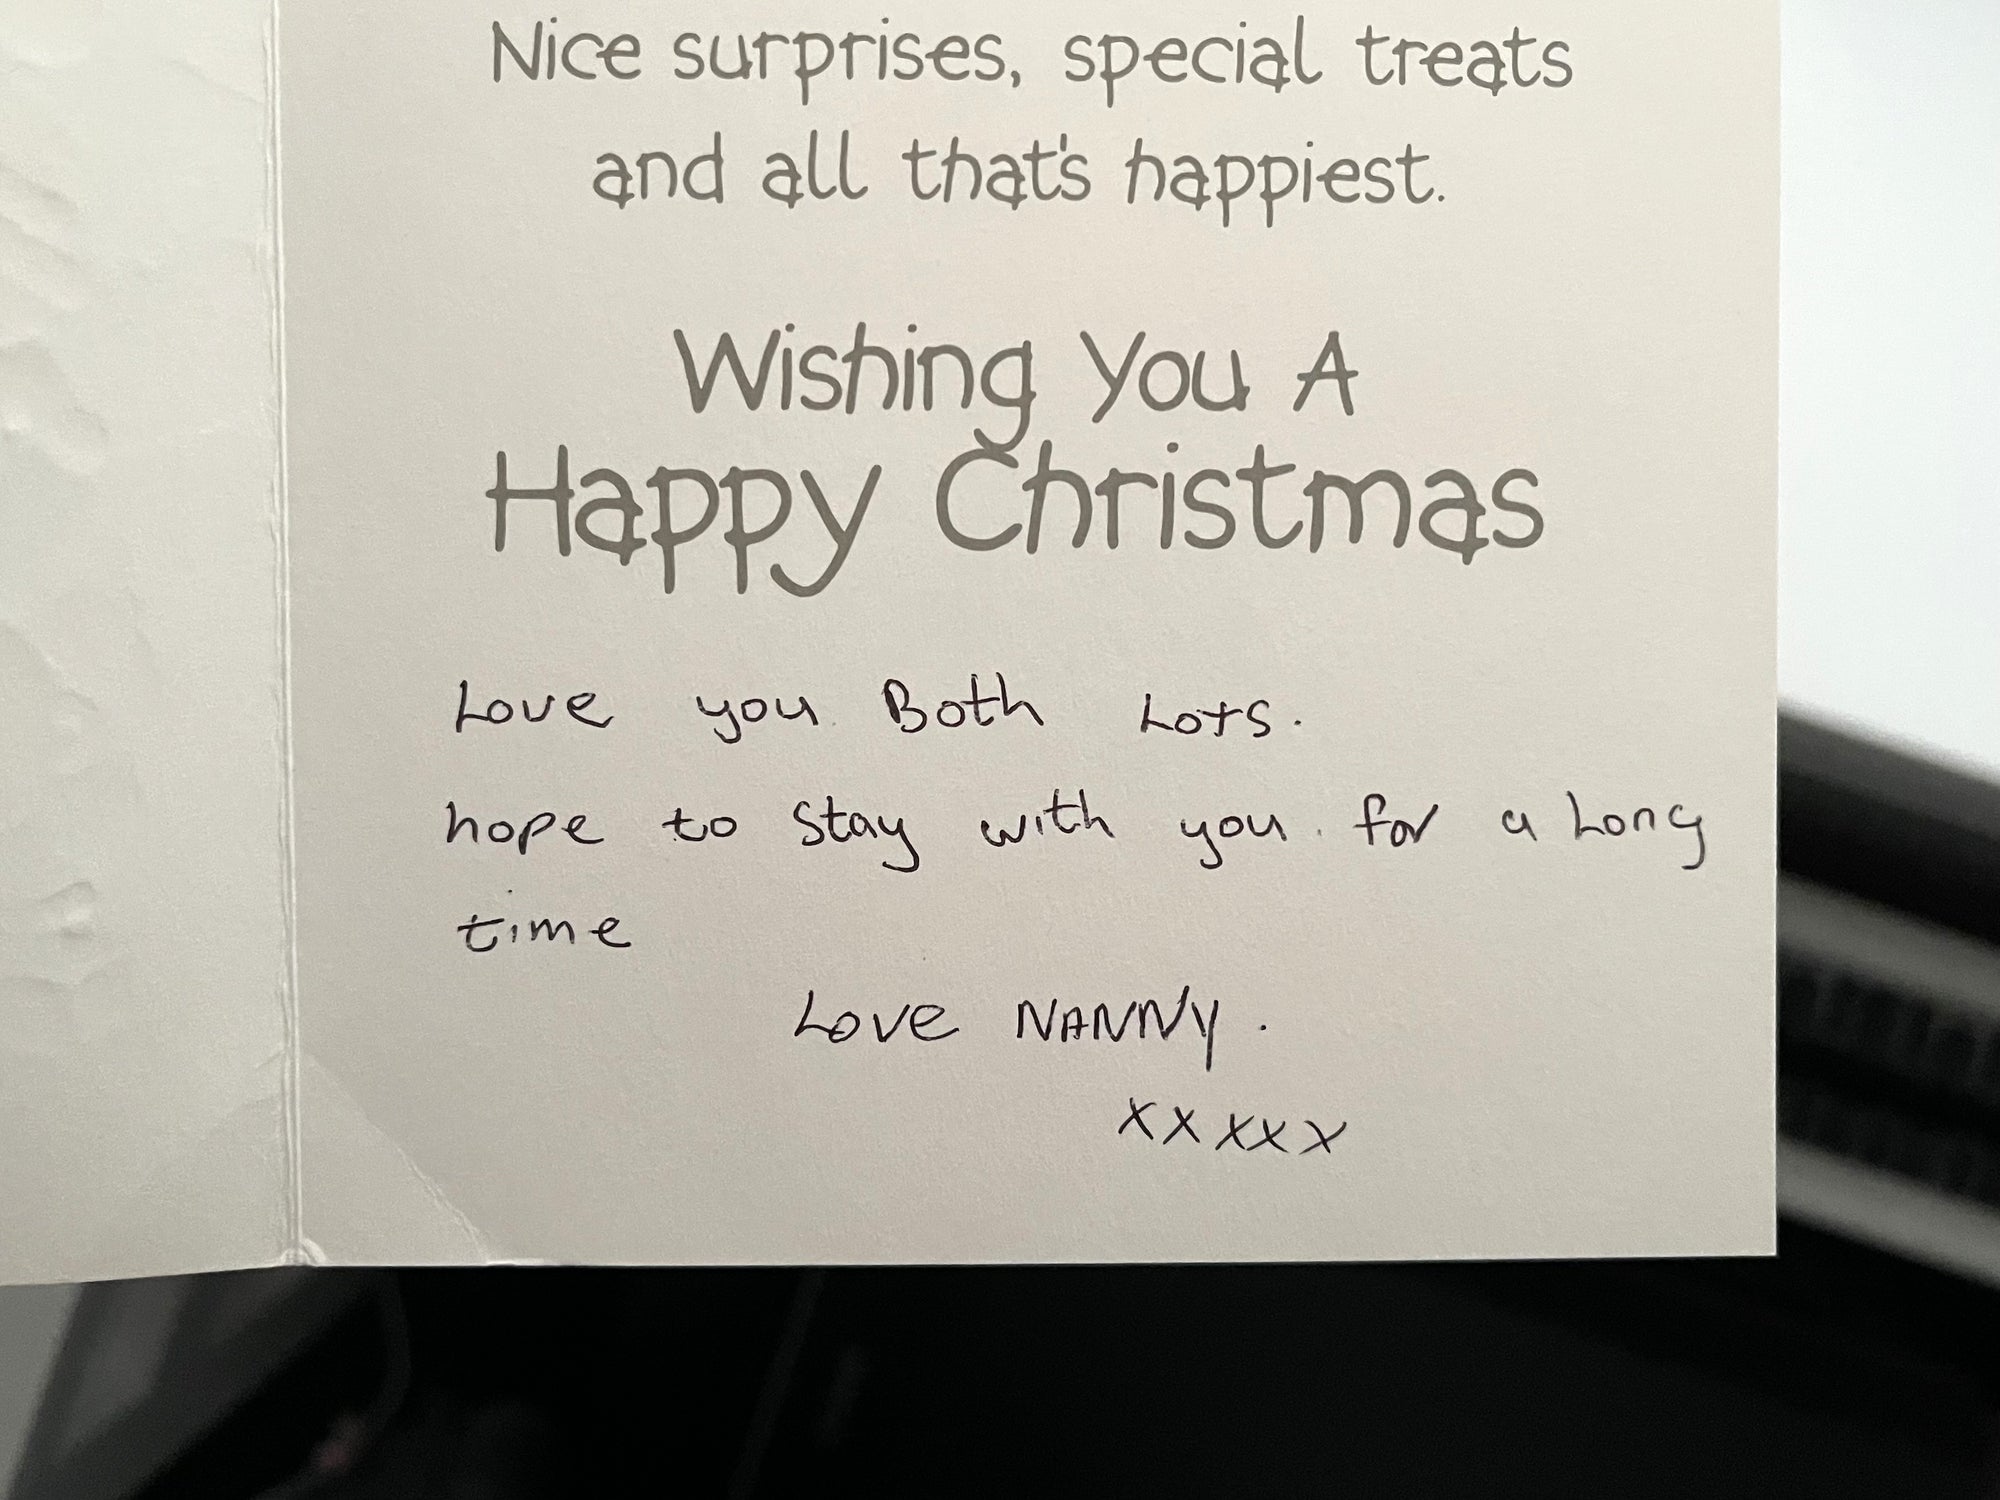 Nice surprises, special treats
and all that's happiest.
Wishing You A
Happy Christmas
Love you Both Lots.
hope to stay with you. for a Long
time
Love NANNY.
xxxxx